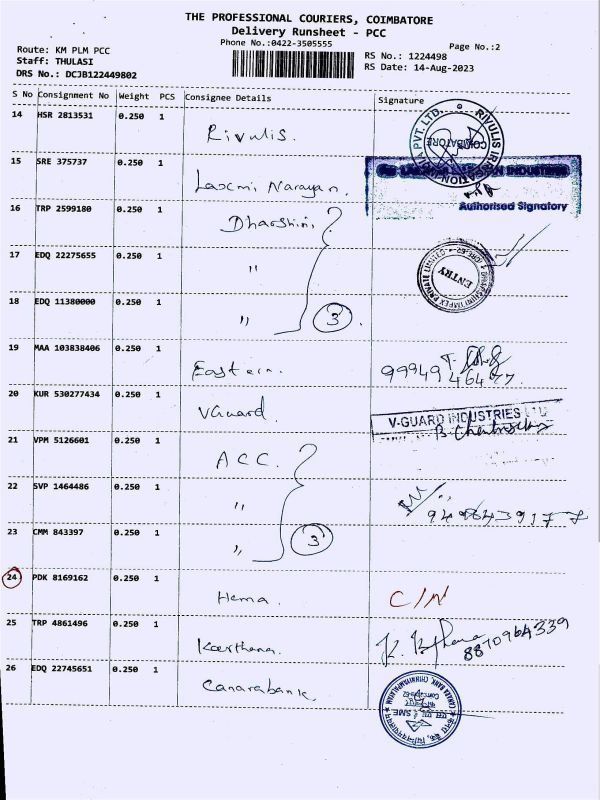 THE PROFESSIONAL COURIERS, COIMBATORE
Delivery Runsheet - PCC
Phone No.:0422-3505555
Page No.:2
Route: KM PLM PCC
Staff: THULASI
DRS No.: DCJB122449802
RS No.: 1224498
RS Date: 14-Aug-2023
S No Consignment No Weight PCS Consignee Details Signature
14 HSR 2813531 0.250 1 Rivulis.
RIVULIS IRRIGATION INDIA PVT. LTD.
COIMBATORE
15 SRE 375737 0.250 1 Laxmi Narayan.
INDUSTRIES
Authorised Signatory
16 TRP 2599180 0.250 1 Dharshini
17 EDQ 22275655 0.250 1 "
ENTRY
18 EDQ 11380000 0.250 1 " 3
19 MAA 103838406 0.250 1 Eastern.
20 KUR 530277434 0.250 1 VGuard.
V-GUARD INDUSTRIES LTD
21 VPM 5126601 0.250 1 ACC.
22 SVP 1464486 0.250 1 "
23 CMM 843397 0.250 1 " 3
24 PDK 8169162 0.250 1 Hema. C/N
25 TRP 4861496 0.250 1 Keerthana. 8870964339
26 EDQ 22745651 0.250 1 Canarabank
SME